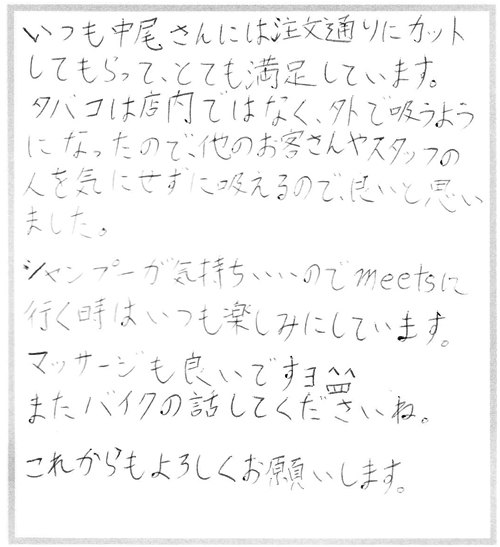 いつも中尾さんには注文通りにカット
してもらって、とても満足しています。
タバコは店内ではなく、外で吸うよう
になったので、他のお客さんやスタッフの
人を気にせずに吸えるので、良いと思い
ました。
シャンプーが気持ちいいのでmeetsに
行く時はいつも楽しみにしています。
マッサージも良いですヨ
またバイクの話してくださいね。
これからもよろしくお願いします。